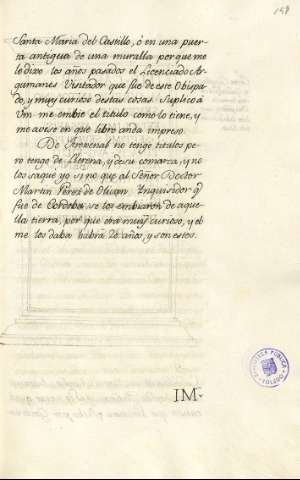 Santa Maria del Castillo, ó en una puer
ta antigua de una muralla por que me
lo dixo los años pasados el Licenciado Ar
gumanes Visitador que fue de este Obispa
do, y muy curioso destas cosas. Suplico á
Vm me embie el titulo como lo tiene, y
me avise en qué libro anda impreso.
De Fregenal no tengo titulos pe
ro tengo de Llerena, y de su comarca, y no
los saqué yo si no que al Señor Doctor
Martin Perez de Olivan Inquisidor q̃
fue de Cordoba, se los embiaron de aque
lla tierra, por que era muy curioso, y el
me los daba habrá 26 años, y son estos.
IM
BIBLIOTECA PUBLICA
TOLEDO